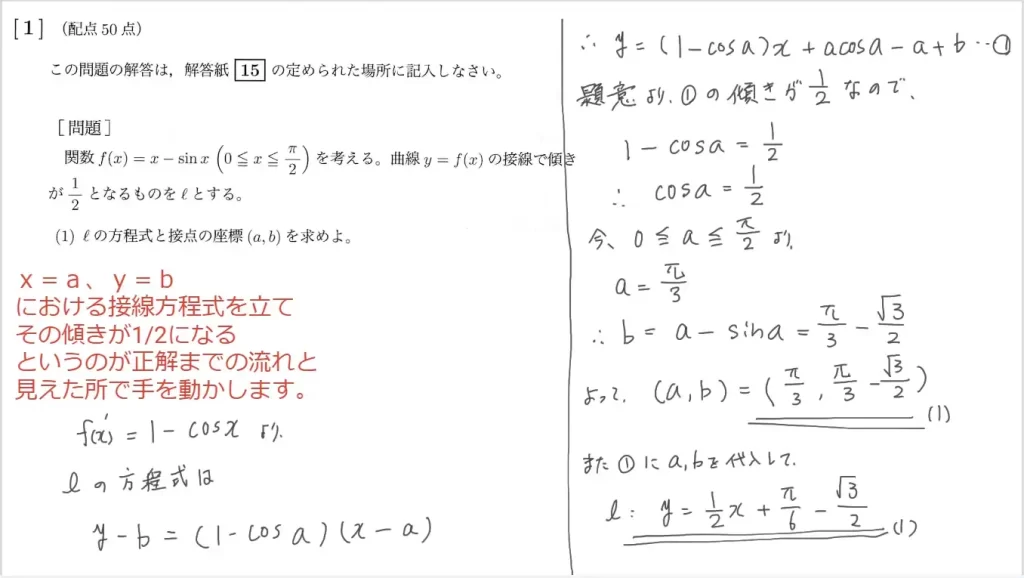 [1] (配点 50 点)
この問題の解答は,解答紙 15 の定められた場所に記入しなさい。
[問題]
関数 f(x) = x − sin x (0 ≦ x ≦ π/2) を考える。曲線 y = f(x) の接線で傾き
が 1/2 となるものを ℓ とする。
(1) ℓ の方程式と接点の座標 (a, b) を求めよ。
x=a、y=b
における接線方程式を立て
その傾きが1/2になる
というのが正解までの流れと
見えた所で手を動かします。
f(x)' = 1 − cosx より、
ℓの方程式は
y − b = (1 − cos a)(x − a)
∴ y = (1 − cosa)x + acosa − a + b …①
題意より、①の傾きが 1/2 なので、
1 − cosa = 1/2
∴ cosa = 1/2
今、0 ≦ a ≦ π/2 より、
a = π/3
∴ b = a − sina = π/3 − √3/2
よって、(a, b) = (π/3, π/3 − √3/2) (1)
また①にa,bを代入して、
ℓ: y = 1/2 x + π/6 − √3/2 (1)